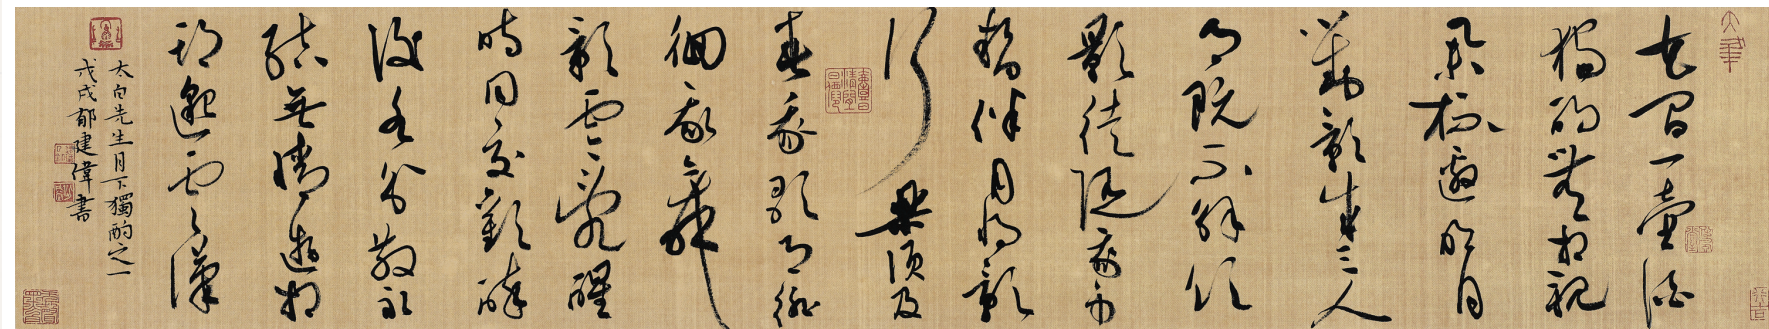 花間一壺酒
獨酌無相親
舉杯邀明月
對影成三人
月既不解飲
影徒隨我身
暫伴月將影
行樂須及
春我歌月徘
徊我舞
影零亂醒
時同交歡醉
後各分散永
結無情遊相
期邈雲漢
太白先生月下獨酌之一
戊戌郁建偉書